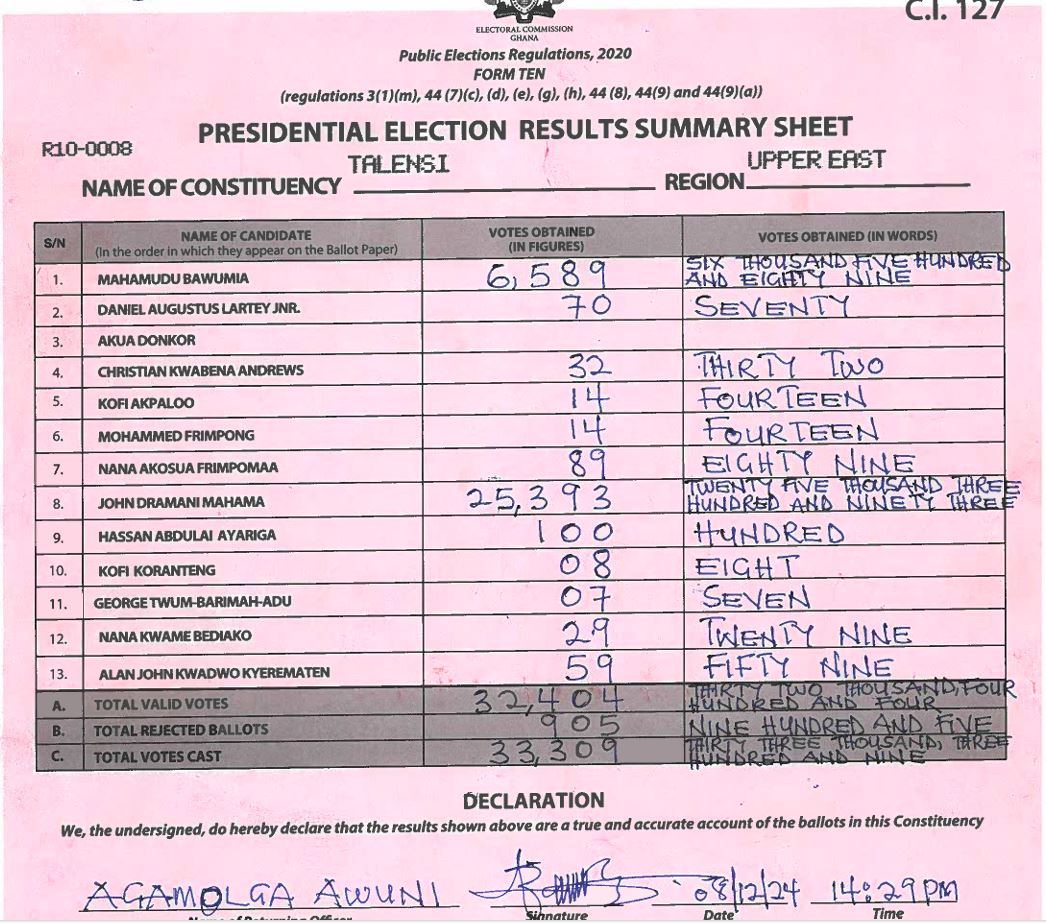 C.I. 127
ELECTORAL COMMISSION
GHANA
Public Elections Regulations, 2020
FORM TEN
(regulations 3(1)(m), 44 (7)(c), (d), (e), (g), (h), 44 (8), 44(9) and 44(9)(a))
PRESIDENTIAL ELECTION RESULTS SUMMARY SHEET
R10-0008
NAME OF CONSTITUENCY TALENSI REGION UPPER EAST
S/N NAME OF CANDIDATE (In the order in which they appear on the Ballot Paper) VOTES OBTAINED (IN FIGURES) VOTES OBTAINED (IN WORDS)
1. MAHAMUDU BAWUMIA 6,589 SIX THOUSAND FIVE HUNDRED AND EIGHTY NINE
2. DANIEL AUGUSTUS LARTEY JNR. 70 SEVENTY
3. AKUA DONKOR
4. CHRISTIAN KWABENA ANDREWS 32 THIRTY TWO
5. KOFI AKPALOO 14 FOURTEEN
6. MOHAMMED FRIMPONG 14 FOURTEEN
7. NANA AKOSUA FRIMPOMAA 89 EIGHTY NINE
8. JOHN DRAMANI MAHAMA 25,393 TWENTY FIVE THOUSAND THREE HUNDRED AND NINETY THREE
9. HASSAN ABDULAI AYARIGA 100 HUNDRED
10. KOFI KORANTENG 08 EIGHT
11. GEORGE TWUM-BARIMAH-ADU 07 SEVEN
12. NANA KWAME BEDIAKO 29 TWENTY NINE
13. ALAN JOHN KWADWO KYEREMATEN 59 FIFTY NINE
A. TOTAL VALID VOTES 32,404 THIRTY TWO THOUSAND, FOUR HUNDRED AND FOUR
B. TOTAL REJECTED BALLOTS 905 NINE HUNDRED AND FIVE
C. TOTAL VOTES CAST 33,309 THIRTY THREE THOUSAND, THREE HUNDRED AND NINE
DECLARATION
We, the undersigned, do hereby declare that the results shown above are a true and accurate account of the ballots in this Constituency
AGAMOLGA AWUNI 08/12/24 14:29PM
Name of Returning Officer Signature Date Time